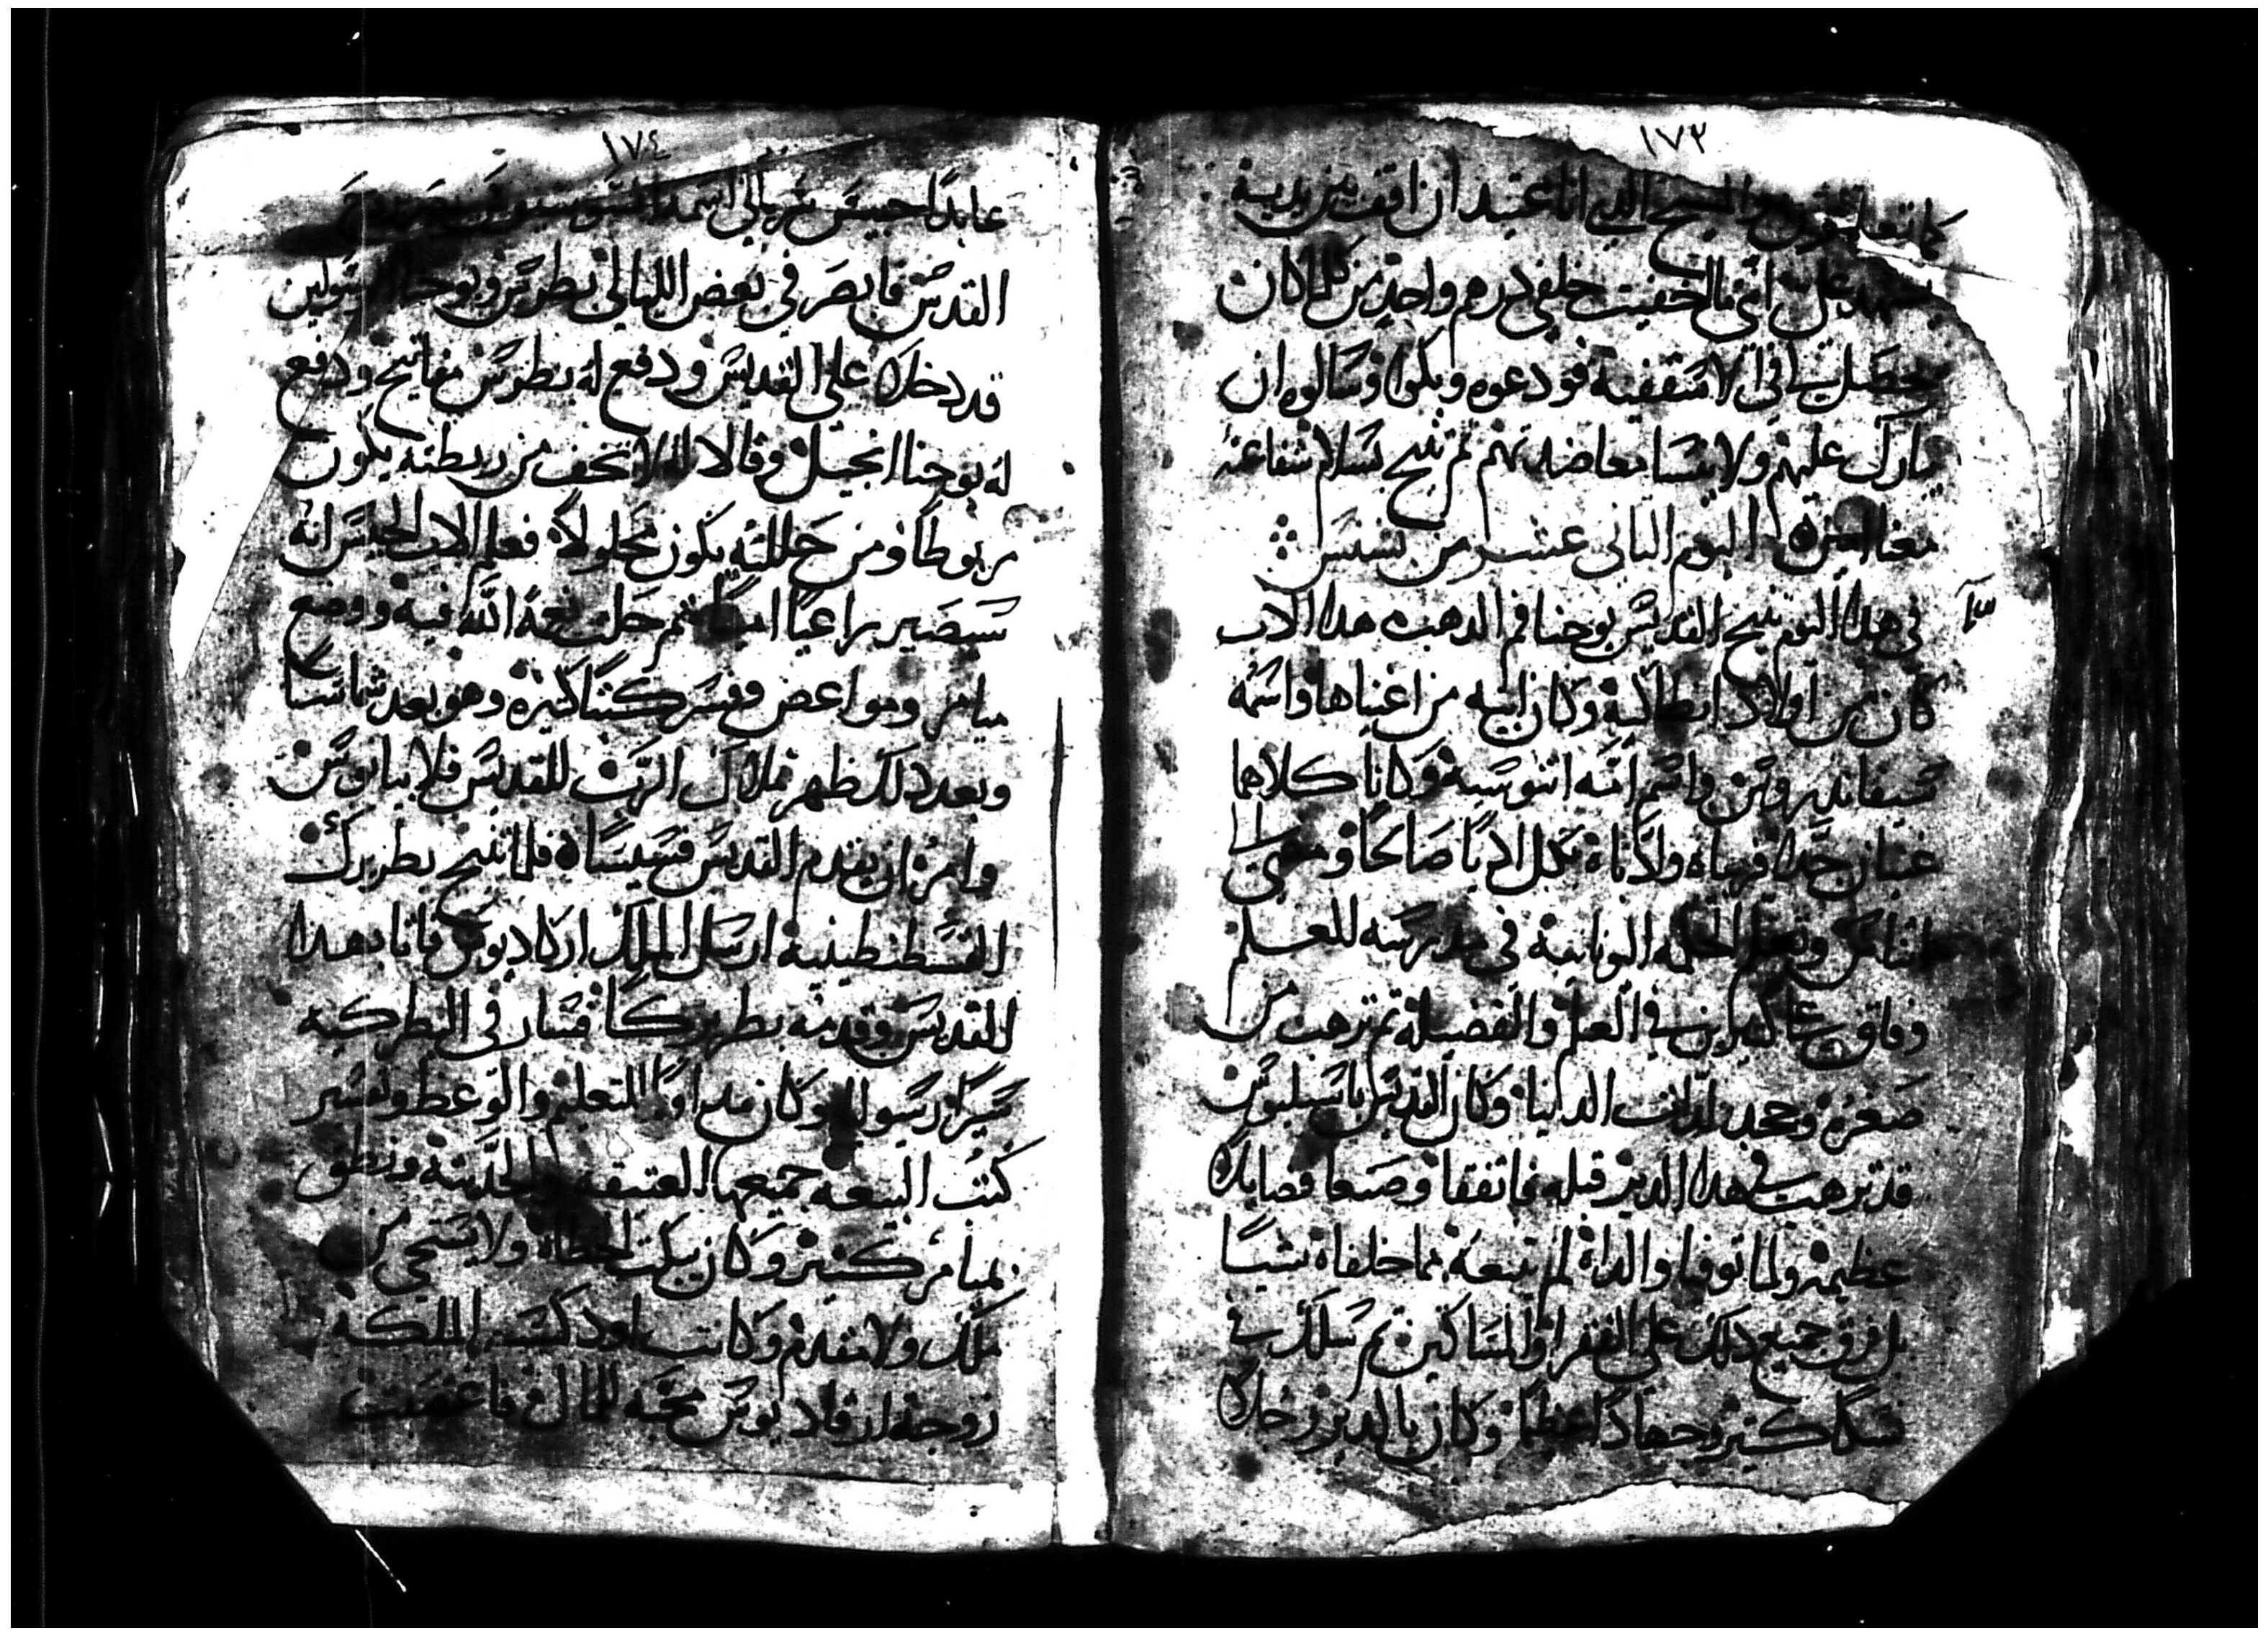 ١٧٣
كما تعلمون والمسيح الدي انا عتيد ان اقف بين يديه
يشهد علي انني ما اخفيت خلفي درهم واحد من كلما كان
يحصل لي في الاسقفية فودعوه وبكوا وسالوه ان
يبارك عليهم ولا ينسا معاضدتهم ثم تنيح بسلام شفاعته
معنا امين اليوم التاني عشر من بشنس
في هدا اليوم تنيح القديس يوحنا فم الدهب هدا الاب
كان من اولاد انطاكية وكان ابيه من اغنياها واسمه
سيفاندروس واسم امه اتنوسية وكانا كلاهما
غنيان جدا فربياه وادباه بكل ادبا صالحا ومضى الى
اتناس وتعلم الحكمه اليونانية في مدرسه للعلم
وفاق على كثيرين في العلم والفضيلة ثم ترهب من
صغره وجحد لدات الدنيا وكان القديس باسيليوس
قد ترهب في هدا الدير قبله فاتفقا وصنعا فضايلا
عظيمة ولما توفيا والداه لم يتبعه مما خلفاه شيا
بل فرق جميع دلك على الفقرا والمساكين ثم سلك في
نسكا كتير وجهادا عظيما وكان بالدير رجلا
١٧٤
عابدا حبيس سرياني اسمه
القديس فابصر في بعض الليالي بطرس ويوحنا الرسولين
قد دخلا على القديس ودفع له بطرس مفاتيح ودفع
له يوحنا انجيل وقالا له لا تخف من ربطته يكون
مربوطا ومن حللته يكون محلولا فعلم الاب الحبيس انه
سيصير راعيا امينا ثم حلت نعمة الله فيه ووضع
ميامر ومواعض وفسر كتبا كتيره وهو بعد شماسا
وبعد دلك ظهر ملاك الرب للقديس فلابيانوس
وامره ان يقدم القديس قسيساه فلما تنيح بطريرك
القسطنطينية ارسل الملك اركاديوس فاتا بهدا
القديس وقدمه بطريركا فسار في البطركيه
سيرا رسوليه وكان مداوما التعليم والوعظ وفسر
كتب البيعه جميعها العتيقه والحديثة ونطق
بميامر كتير وكان يبكت الخطاه ولا يستحي من
ملك ولا متقدم وكانت اودكسيه الملكه
زوجة ارقاديوس محبه للمال فاغتصبت